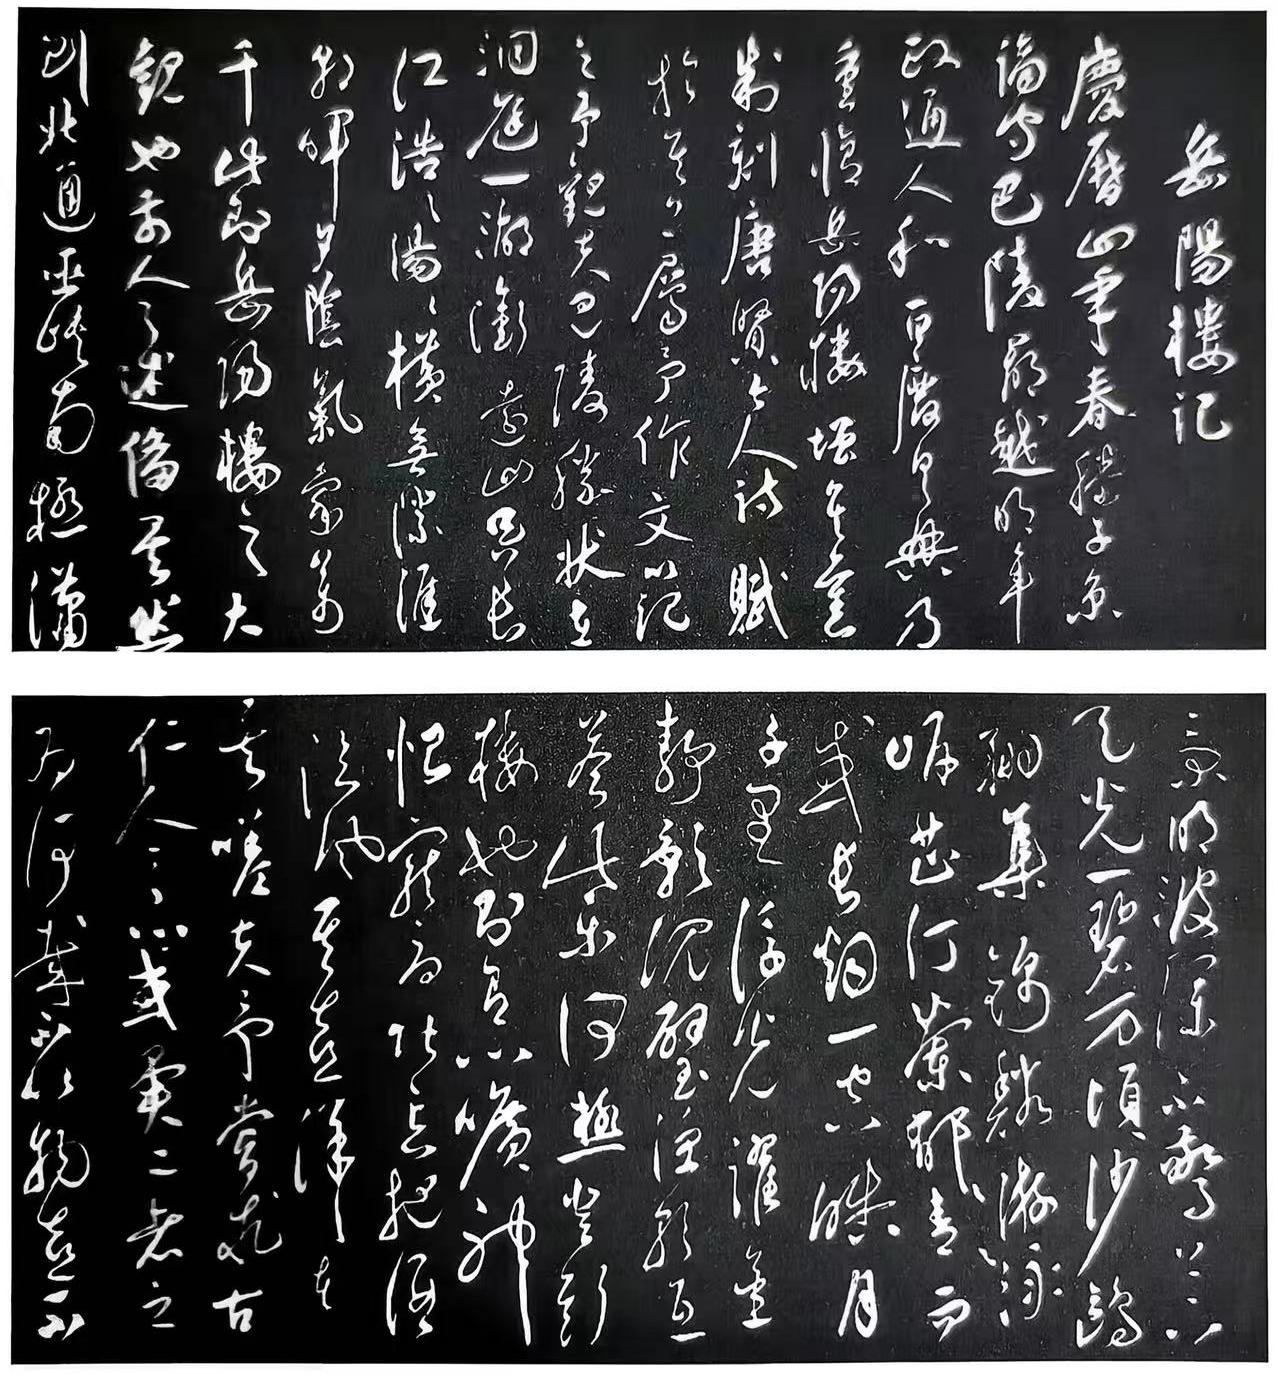 岳陽樓記
慶曆四年春滕子京
謫守巴陵郡越明年
政通人和百廢具興乃
重修岳陽樓增其舊
制刻唐賢今人詩賦
於其上屬予作文以記
之予觀夫巴陵勝狀在
洞庭一湖銜遠山吞長
江浩浩湯湯橫無際涯
朝暉夕陰氣象萬
千此則岳陽樓之大
觀也前人之述備矣然
則北通巫峽南極瀟
景明波瀾不驚上下
天光一碧萬頃沙鷗
翔集錦鱗游泳
岸芷汀蘭郁郁青青而
或長煙一空皓月
千里浮光躍金
靜影沉璧漁歌互
答此樂何極登斯
樓也則有心曠神
怡寵辱皆忘把酒
臨風其喜洋洋者
矣嗟夫予嘗求古
仁人之心或異二者之
為何哉不以物喜不